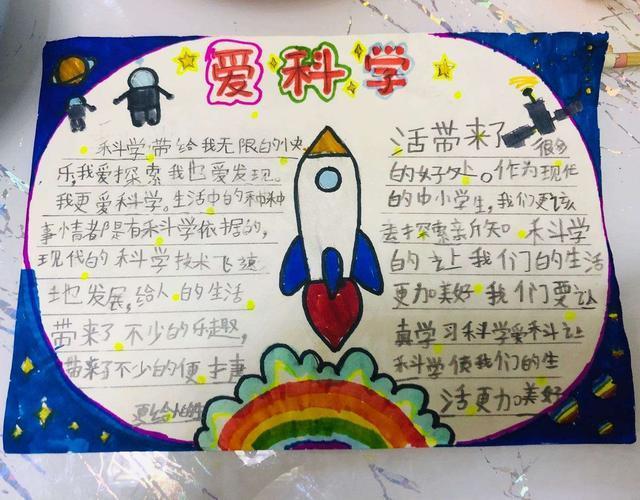 爱科学
科学带给我无限的快
乐,我爱探索我也爱发现。
我更爱科学。生活中的种种
事情都是有科学依据的,
现代的科学技术飞速
地发展,给人的生活
带来了不少的乐趣,
带来了不少的便
更给人的
活带来了很多
的好处。作为现代
的中小学生,我们更该
去探索新知 科学
的 让我们的生活
更加美好 我们要认
真学习科学爱科 让
科学使我们的生
活更加美好